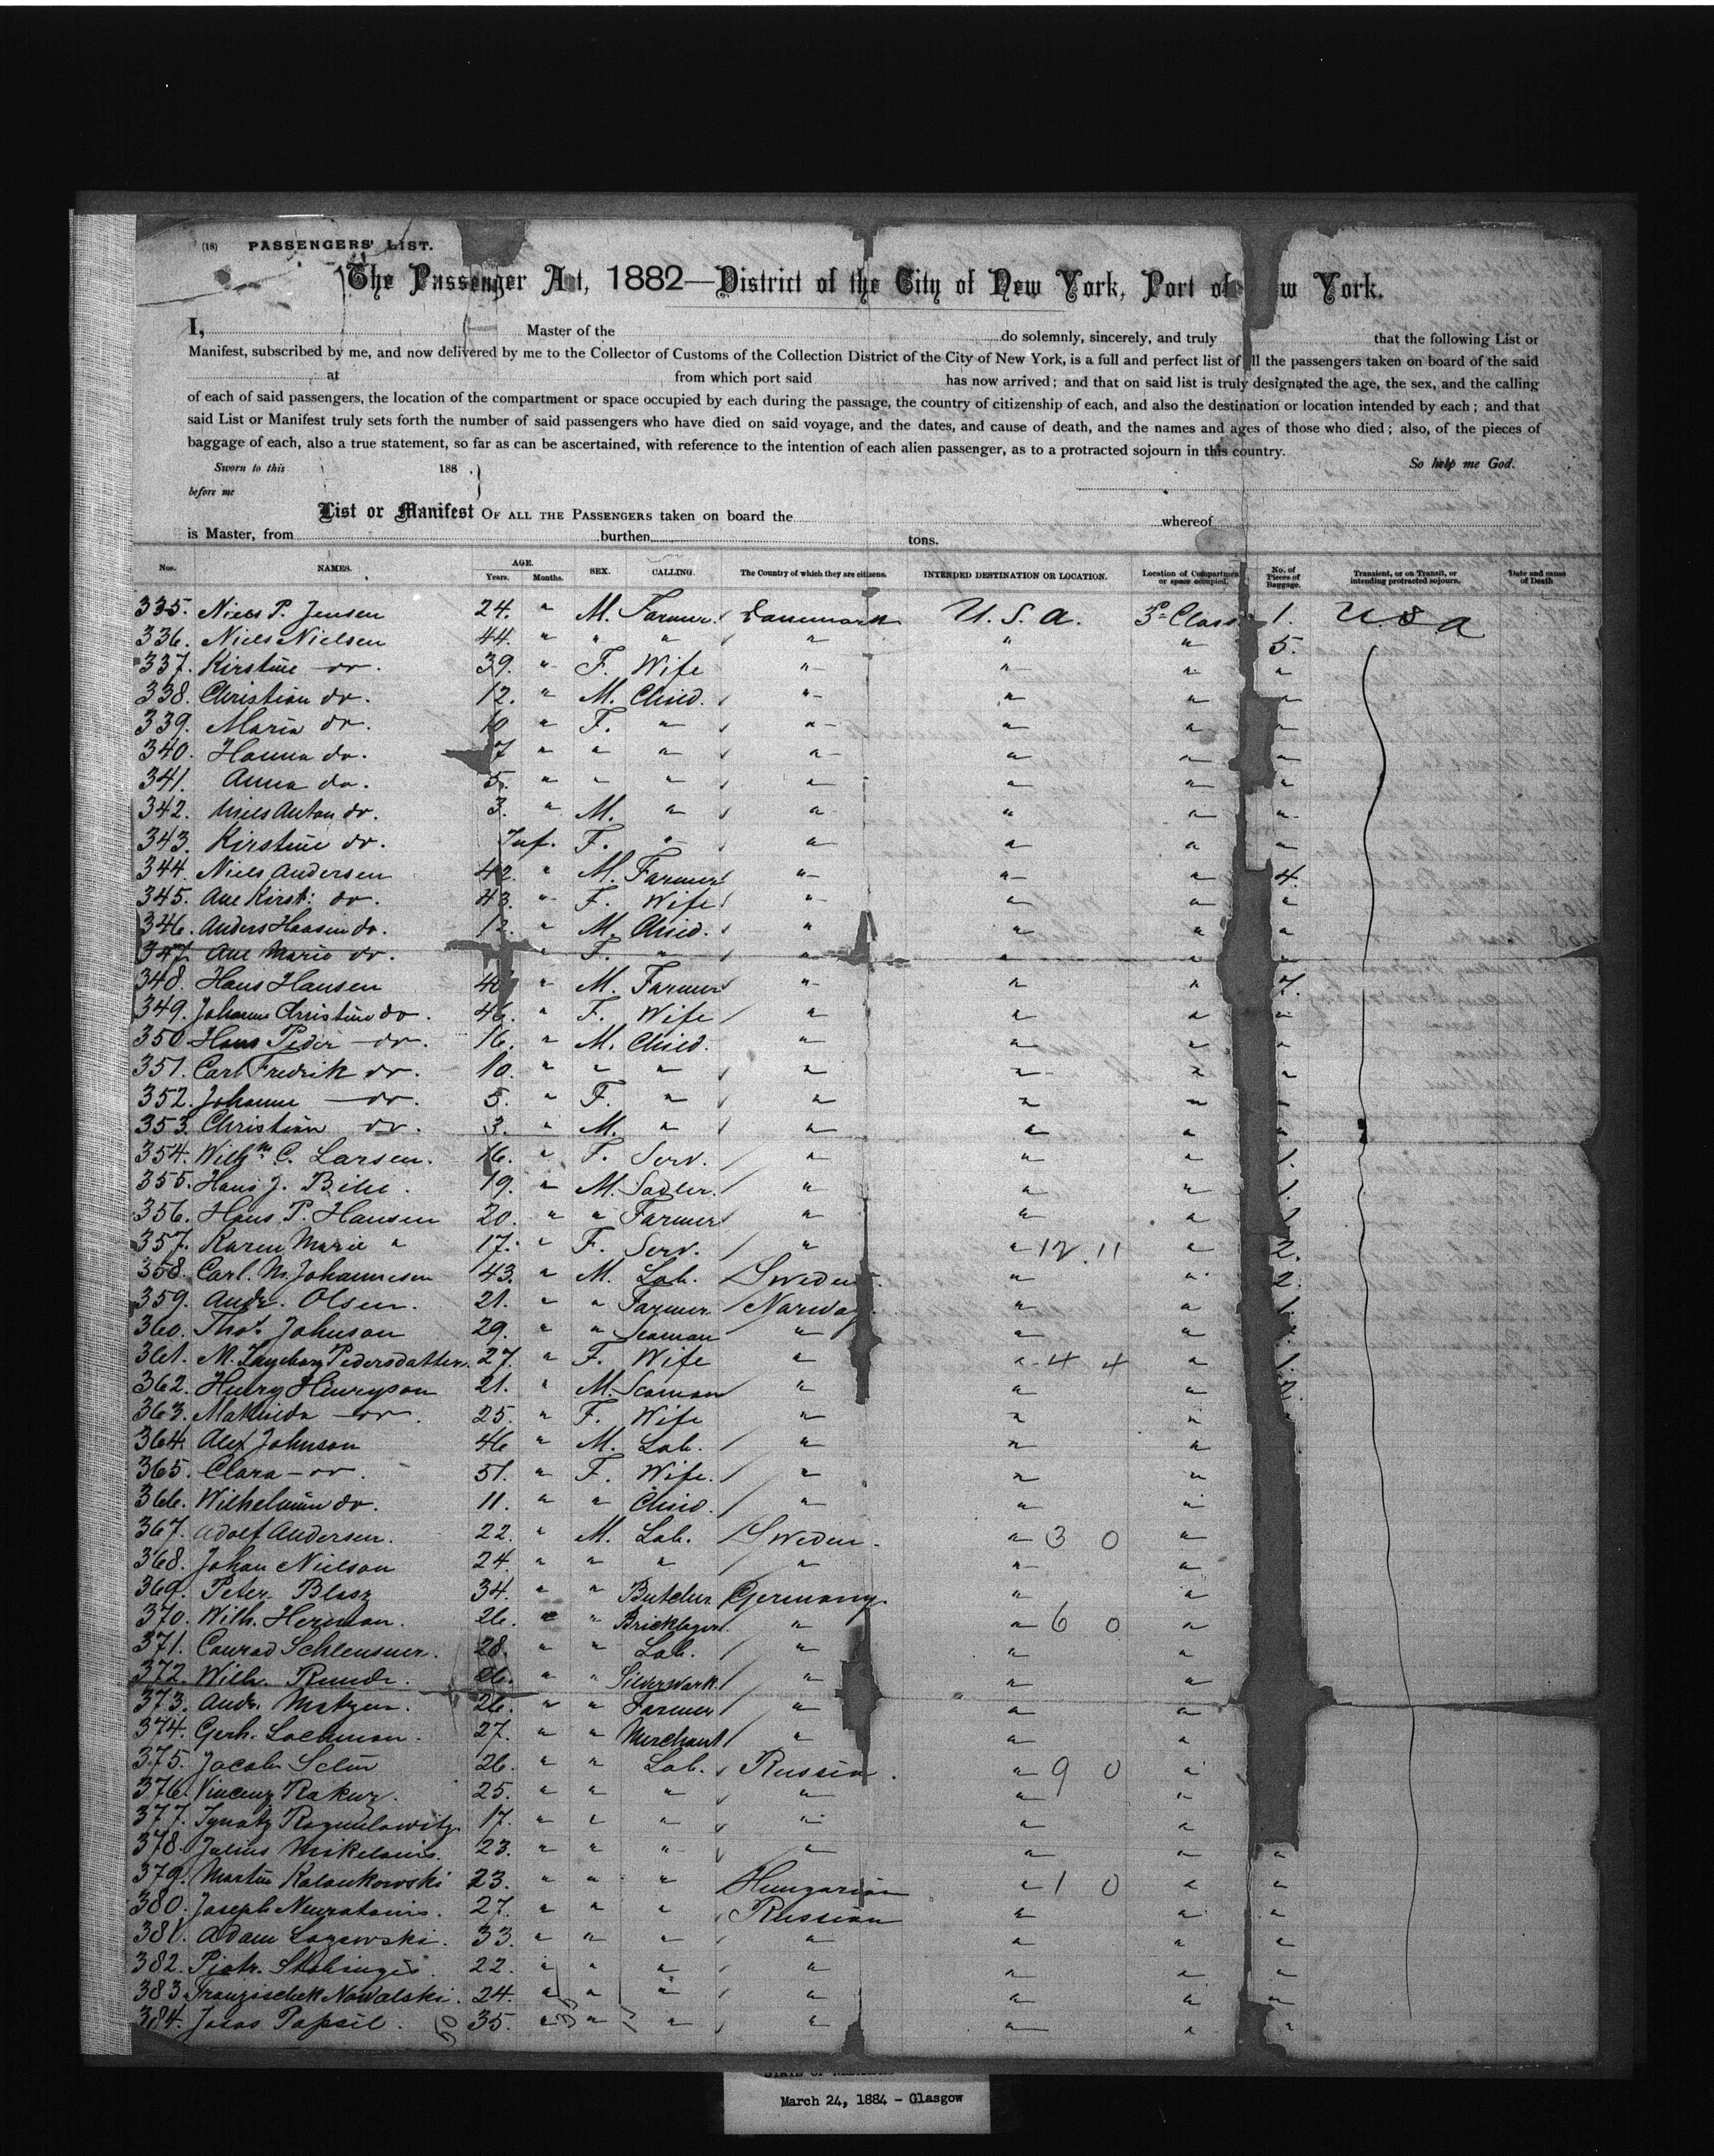 (18) PASSENGERS' LIST.
The Passenger Act, 1882—District of the City of New York, Port of New York.
I, Master of the do solemnly, sincerely, and truly that the following List or
Manifest, subscribed by me, and now delivered by me to the Collector of Customs of the Collection District of the City of New York, is a full and perfect list of all the passengers taken on board of the said
at from which port said has now arrived; and that on said list is truly designated the age, the sex, and the calling
of each of said passengers, the location of the compartment or space occupied by each during the passage, the country of citizenship of each, and also the destination or location intended by each; and that
said List or Manifest truly sets forth the number of said passengers who have died on said voyage, and the dates, and cause of death, and the names and ages of those who died; also, of the pieces of
baggage of each, also a true statement, so far as can be ascertained, with reference to the intention of each alien passenger, as to a protracted sojourn in this country.
Sworn to this 188 So help me God.
before me
List or Manifest OF ALL THE PASSENGERS taken on board the whereof
is Master, from burthen tons.
Nos. NAMES. AGE. Years. Months. SEX. CALLING. The Country of which they are citizens. INTENDED DESTINATION OR LOCATION. Location of Compartment or space occupied. No. of Pieces of Baggage. Transient, or on Transit, or intending protracted sojourn. Date and cause of Death
335. Niels P. Jensen 24. " M. Farmer Danmark U.S.A. 3d Class 1. U S A
336. Niels Nielsen 44. " " " " " " 5.
337. Kirstine do. 39. " F. Wife " " " "
338. Christian do. 12. " M. Child. " " " "
339. Maria do. 10 " F. " " " " "
340. Hanna do. 7 " " " " " " "
341. Anna do. 5. " " " " " " "
342. Niels Anton do. 3. " M. " " " " "
343. Kirstine do. Inf. F. " " " " "
344. Niels Andersen 42. " M. Farmer " " " 4.
345. Ane Kirst: do. 43. " F. Wife " " " "
346. Anders Hansen do. 12. " M. Child. " " " "
347. Ane Marie do. " F. " " " " "
348. Hans Hansen " M. Farmer " " " 7.
349. Johanne Christine do. 46. " F. Wife " " " "
350. Hans Peder do. 16. " M. Child. " " " "
351. Carl Fredrik do. 10. " " " " " " "
352. Johanne do. 5. " F. " " " " "
353. Christian do. 3. " M. " " " " "
354. Wilhm C. Larsen. 16. " F. Serv. " " " 1.
355. Hans J. 19. " M. Sadler. " " " 1.
356. Hans P. Hansen 20. " " Farmer " " " 1
357. Karen Marie " 17. " F. Serv. " " 12 11 " 2.
358. Carl. M. Johannesen 43. " M. Lab. Sweden. " " 2.
359. Andr. Olsen. 21. " " Farmer Norway. " " 1.
360. Thos. Johnson 29. " " Seaman " " "
361. M. Ingeborg Pedersdatter. 27. " F. Wife " " 4 4 " 1.
362. Henry Henryson 21. " M. Seaman " " " 2.
363. Mathilda do. 25. " F. Wife " " "
364. Alex Johnson 46 " M. Lab. " " "
365. Clara do. 51. " F. Wife. " " "
366. Wilhelmin do. 11. " " Child. " " "
367. Adolf Andersen. 22. " M. Lab. Sweden. " 3 0 "
368. Johan Nielson 24. " " " " " "
369. Peter Blasz 34. " " Butcher Germany. " "
370. Wilh. Herman. 26. " " Bricklayer. " " 6 0 "
371. Conrad Schleusner. 28. " " Lab. " " "
372. Wilh. Runde. 26. " " Silverwork. " " "
373. Andr. Matzen. 26. " " Farmer " " "
374. Gerh. Lochman. 27. " " Merchant " " "
375. Jacob 26. " " Lab. Russia. " 9 0 "
376. Vincenz Rakuz. 25. " " " " " "
377. Ignatz 17. " " " " " "
378. Julius 23. " " " " " " "
379. Martin Kalankowski 23. " " " Hungarian " 1 0 " "
380. Joseph 27. " " " Russian " " "
381. Adam Lazewski. 33. " " " " " " "
382. Piotr. 22. " " " " " " "
383. Franzischek Nowalski. 24. " " " " " " "
384. Josas Papsil. 35. " " " " " " "
March 24, 1884 - Glasgow